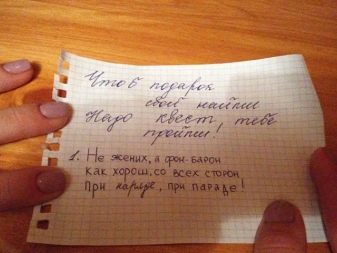 Чтоб подарок
свой найти
Надо квест, тебе
пройти!
1. Не жених, а фон-барон
Как хорош, со всех сторон
При параде, при параде!